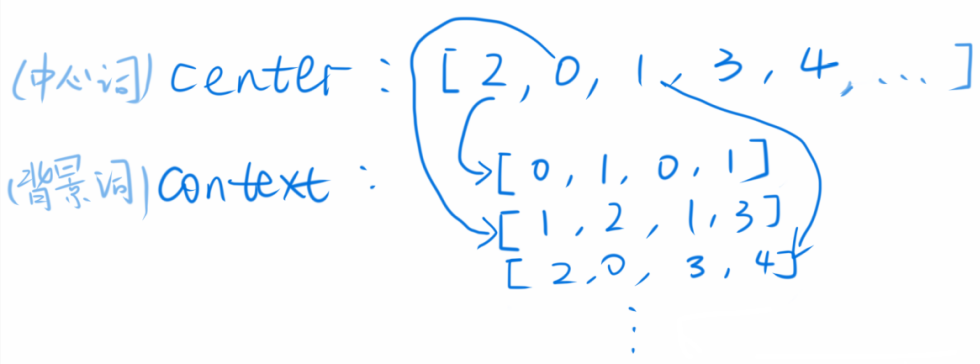 (中心词) center : [ 2 , 0 , 1 , 3 , 4 , ... ]
(背景词) context : [ 0 , 1 , 0 , 1 ]
[ 1 , 2 , 1 , 3 ]
[ 2 , 0 , 3 , 4 ]
⋮